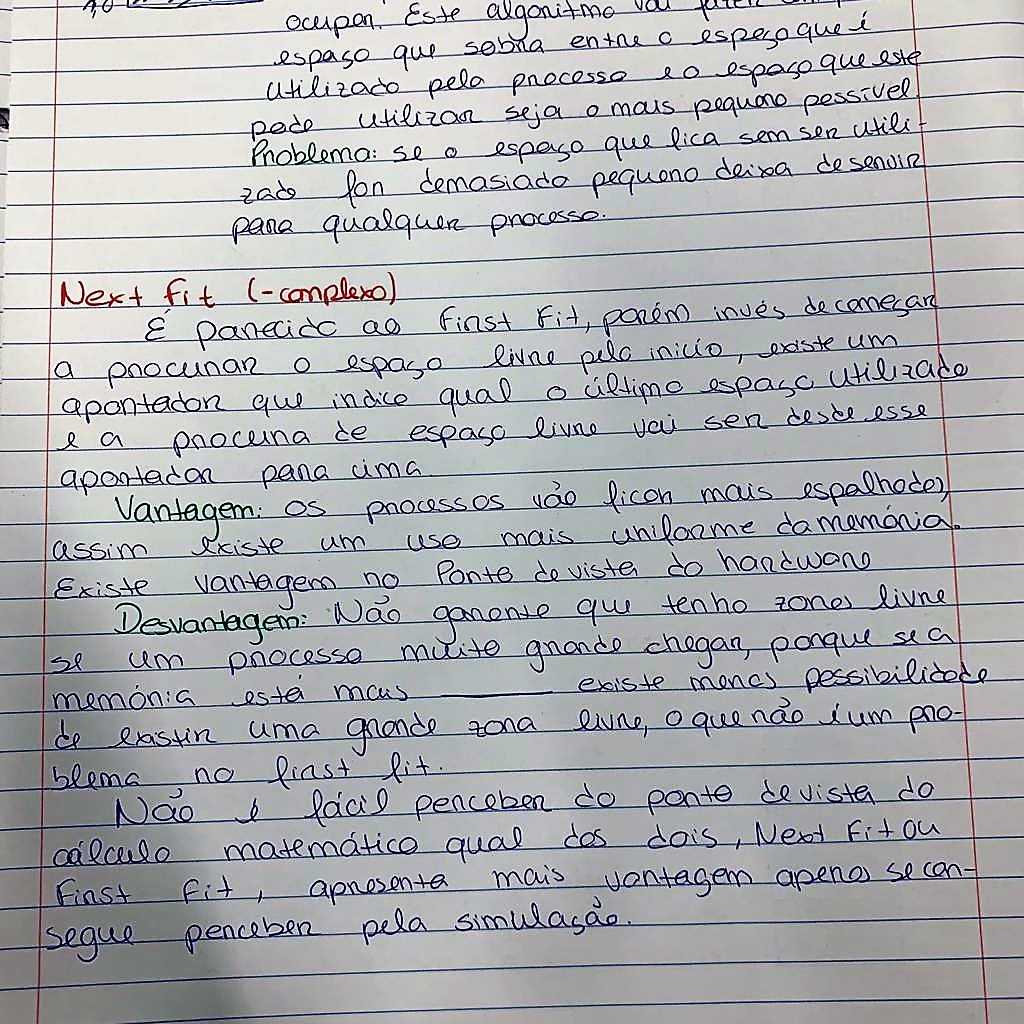 ocupar. Este algoritmo vai
espaço que sobra entre o espaço que é
utilizado pelo processo e o espaço que este
pode utilizar seja o mais pequeno possível
Problema: se o espaço que fica sem ser utili-
zado for demasiado pequeno deixa de servir
para qualquer processo.
Next Fit (-complexo)
É parecido ao First Fit, porém invés de começar
a procurar o espaço livre pelo inicio, existe um
apontador que indica qual o último espaço utilizado
e a procura de espaço livre vai ser desde esse
apontador para cima
Vantagem: Os processos vão ficar mais espalhados,
assim existe um uso mais uniforme da memória.
Existe vantagem no Ponto de vista do hardware
Desvantagem: Não garante que tenho zonas livre
se um processo muito grande chegar, porque se a
memória está mais ______ existe menos possibilidade
de existir uma grande zona livre, o que não é um pro-
blema no first fit.
Não é fácil perceber do ponto de vista do
cálculo matemático qual dos dois, Next Fit ou
First Fit, apresenta mais vantagem apenas se con-
segue perceber pela simulação.